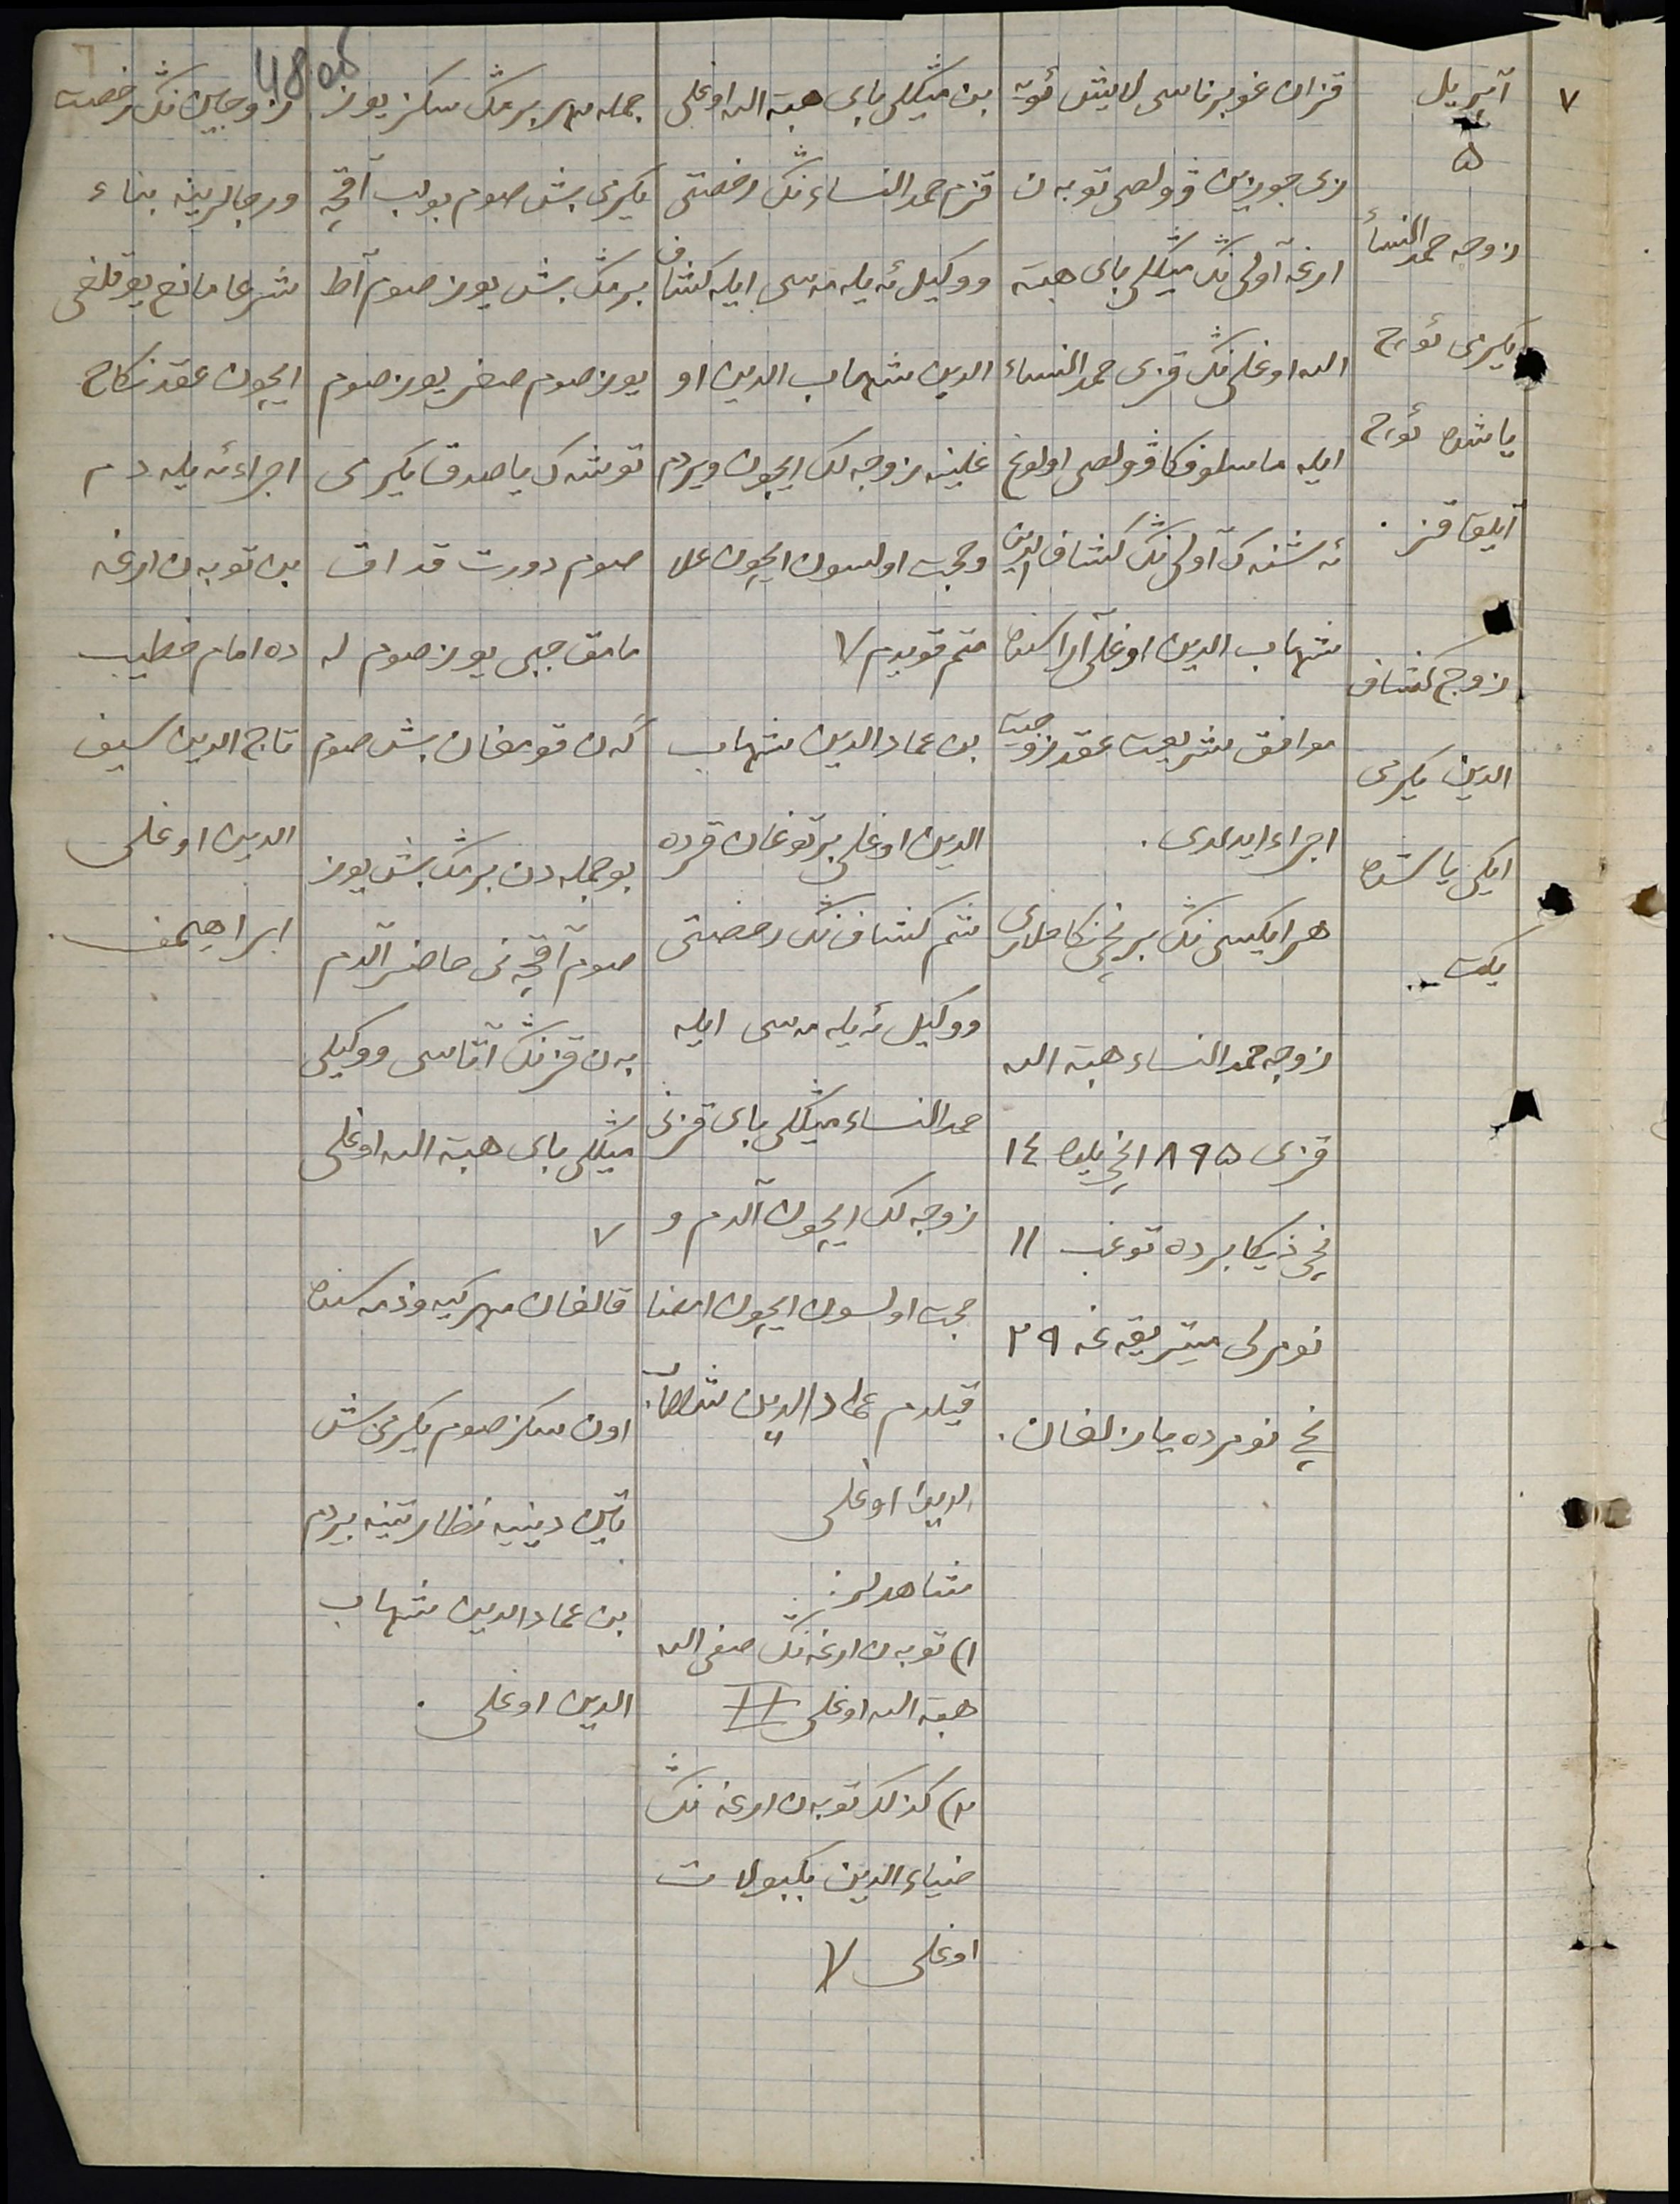 48 об
٧
آپریل
٥
زوجه حمدالنسأ
یکرمی ئوچ
یاشده ئوچ
آیلق قز .
زوج کشاف
الدین یکرمی
ایکی یاشده
یکت ..
قزان غوبرناسی لایش ئویه
زی جوریس ڤولصی توبه ن
ارغه آولی نڭ میڭلی بای هبة
الله اوغلی نڭ قزی حمد النساء
ایله ماسلوفکا ڤولصی اولوغ
ئه شنه ک آولی نڭ کشاف الدین
شهاب الدین اوغلی آراسنده
موافق شریعت عقد زوجیت
اجراء ایدلدی .
هر ایکیسی نڭ برنچی نکاحلری
زوجه حمد النساء هبة الله
قزی ١٨٩٥ نچی یلده ١٤
نچی دیکابرده توغب ١١
نومرلی میتریقه غه ٢٩
نچی نومرده یازلغان .
بن میڭلی بای هبة الله اوغلی
قزم حمد النساء نڭ رخصتی
ووکیل ئه یله مه سی ایله کشاف
الدین شهاب الدین او
غلینه زوجه لک ایچون ویردم
وحجت اولسون ایچون علا
متم قویدم ٧
بن عماد الدین شهاب
الدین اوغلی بر توغان قرده
شم کشاف نڭ رخصتی
ووکیل ئه یله مه سی ایله
حمد النساء میڭلی بای قزنی
زوجه لک ایچون آلدم و
حجت اولسون ایچون امضا
قیلدم عماد الدین شهاب
الدین اوغلی
شاهدلر:
١) توبه ن ارغه نڭ صفی الله
هبة الله اوغلی
٢) کذلک توبه ن ارغه نڭ
ضیاء الدین بکبولات
اوغلی ٧
جمله مهر بر مڭ سکز یوز
یکرمی بش صوم بولب آقچه
بر مڭ بش یوز صوم آط
یوز صوم صغر یوز صوم
توشه ک یاصدق یکرمی
صوم دورت قداق
مامق جبی یوز صوم له
که ن قومغان بش صوم
بو جمله دن بر مڭ بش یوز
صوم آقچه نی حاضر آلدم
به ن قزنڭ آتاسی ووکیلی
میڭلی بای هبة الله اوغلی
٧
قالغان مهر کیه و ذمه سنده
اون سکز صوم یکرمی بش
تاین دینیه نظارتینه بیردم
بن عماد الدین شهاب
الدین اوغلی .
زوجین نڭ رخصت
ورجالرینه بناء
شرعا مانع یوقلغی
ایچون عقد نکاح
اجراء ئه یله دم
بن توبه ن ارغه
ده امام خطیب
تاج الدین سیف
الدین اوغلی
ابراهیمف .